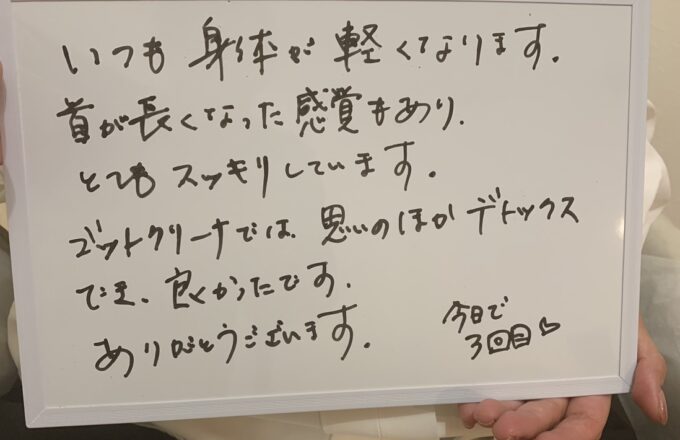 いつも身体が軽くなります。
首が長くなった感覚もあり、
とてもスッキリしています。
ゴットクリーナでは、思いのほかデトックス
でき、良かったです。
ありがとうございます。
今日で
3回目